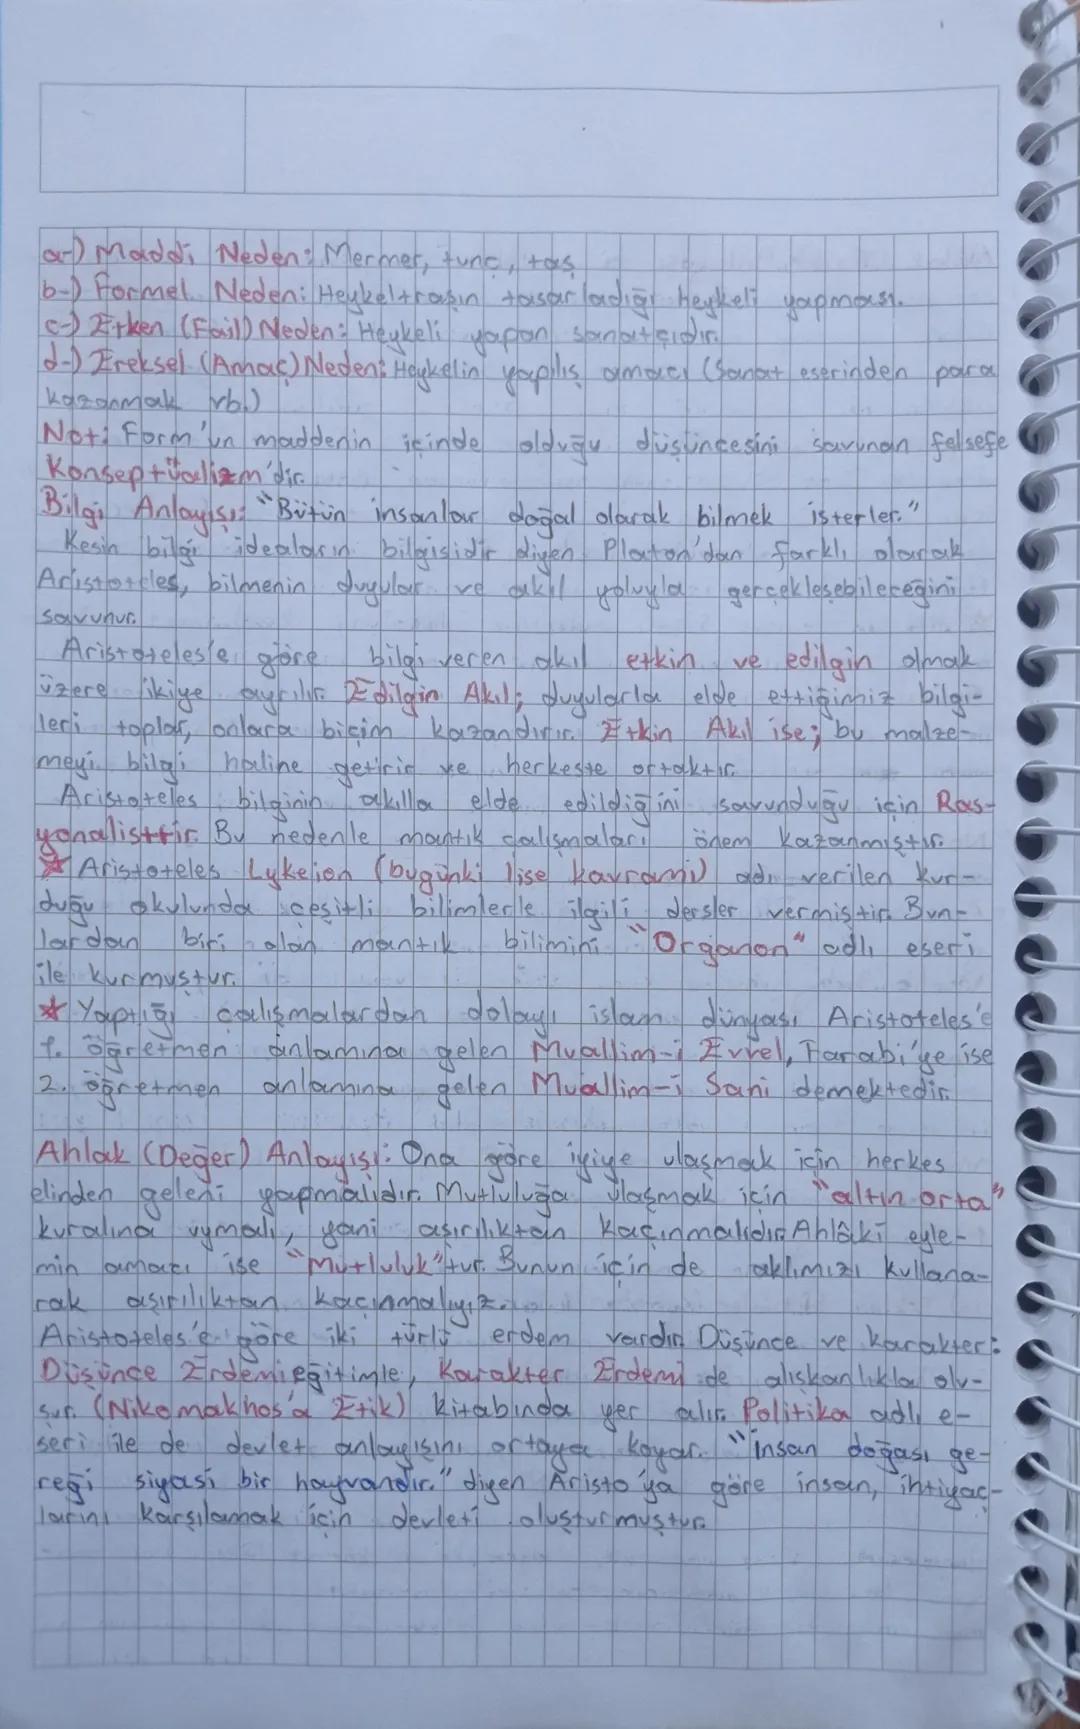 a-) Maddi Neden: Mermer, tunç, taş
b-) Formel Neden: Heykeltraşın tasarladığı Heykeli yapması.
c-) Etken (Fail) Neden: Heykeli yapan sanatçıdır.
d-) Ereksel (Amaç) Neden: Heykelin yapılış amacı (Sanat eserinden para
kazanmak vb.)
Not: Form'un maddenin içinde olduğu düşüncesini savunan felsefe
Konseptüalizm'dir.
Bilgi Anlayışı: "Bütün insanlar doğal olarak bilmek isterler."
Kesin bilgi ideaların bilgisidir diyen Platon'dan farklı olarak
Aristoteles, bilmenin duyular ve akıl yoluyla gerçekleşebileceğini
savunur.
Aristoteles'e göre bilgi veren akıl etkin ve edilgin olmak
üzere ikiye ayrılır. Edilgin Akıl; duyularla elde ettiğimiz bilgi-
leri toplar, onlara biçim kazandırır. Etkin Akıl ise; bu malze-
meyi bilgi haline getirir ve herkeste ortaktır.
Aristoteles bilginin akılla elde edildiğini savunduğu için Ras-
yonalisttir. Bu nedenle mantık çalışmaları önem kazanmıştır.
★ Aristoteles Lykeion (bugünki lise kavramı) adı verilen kur-
duğu okulunda çeşitli bilimlerle ilgili dersler vermiştir. Bun-
lardan biri olan mantık bilimini "Organon" adlı eseri
ile kurmuştur.
★ Yaptığı çalışmalardan dolayı islam dünyası Aristoteles'e
1. öğretmen anlamına gelen Muallim-i Evvel, Farabi'ye ise
2. öğretmen anlamına gelen Muallim-i Sani demektedir.
Ahlak (Değer) Anlayışı: Ona göre iyiye ulaşmak için herkes
elinden geleni yapmalıdır. Mutluluğa ulaşmak için "altın orta"
kuralına uymalı, yani aşırılıktan kaçınmalıdır. Ahlâkî eyle-
min amacı ise "Mutluluk"tur. Bunun için de aklımızı kullana-
rak aşırılıktan kaçınmalıyız.
Aristoteles'e göre iki türlü erdem vardır. Düşünce ve karakter:
Düşünce Erdemi eğitimle, Karakter Erdemi de alışkanlıkla olu-
şur. (Nikomakhos'a Etik) kitabında yer alır. Politika adlı e-
seri ile de devlet anlayışını ortaya koyar. "İnsan doğası ge-
reği siyasi bir hayvandır." diyen Aristo'ya göre insan, ihtiyaç-
larını karşılamak için devleti oluşturmuştur.